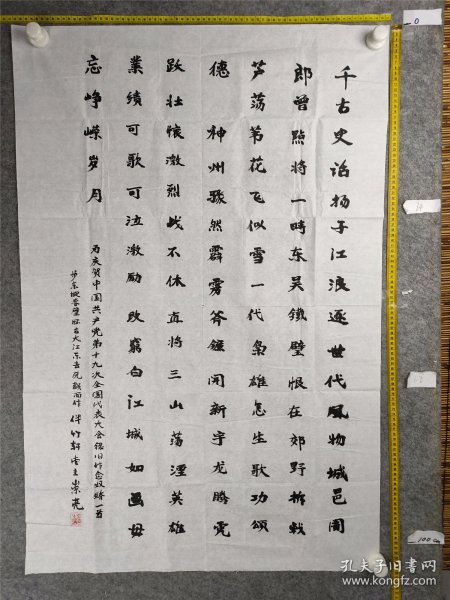 千古史话扬子江浪逐世代風物城邑周
郎曾點将一時东吴鐵壁恨在郊野折戟
芦荡苇花飞似雪一代枭雄怎生歌功頌
德 神州豫然霹雳斧錘闹新宇龙腾虎
跃壮懷激烈战不休直将三山荡湮英雄
業绩可歌可泣激励 改窮白江城如画毋
忘峥嵘岁月
为庆贺中国共产党第十九次全国代表大会 一首
步东坡赤壁怀古大江东去 而作 伴竹轩 主 崇亮
0
100cm
孔夫子旧书网
https://www.kongfz.com